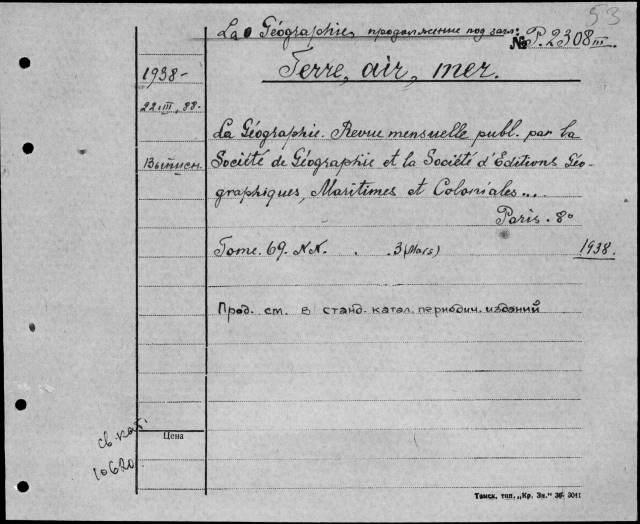 53
La Géographie, продолжение под загл:
№ P.2308 III.
Terre, air, mer.
1938-
22.III.38.
La Géographie. Revue mensuelle publ. par la
Выписн. Société de Géographie et la Société d'Editions Géo-
graphiques, Maritimes et Coloniales...
Paris. 8°
Tome. 69. N.N. . . 3 (Mars) 1938.
Прод. см. в станд. катал. периодич. изданий
св. кат.
10620.
Цена
Танск. тип. „Кр. Зн.“ 36- 3041